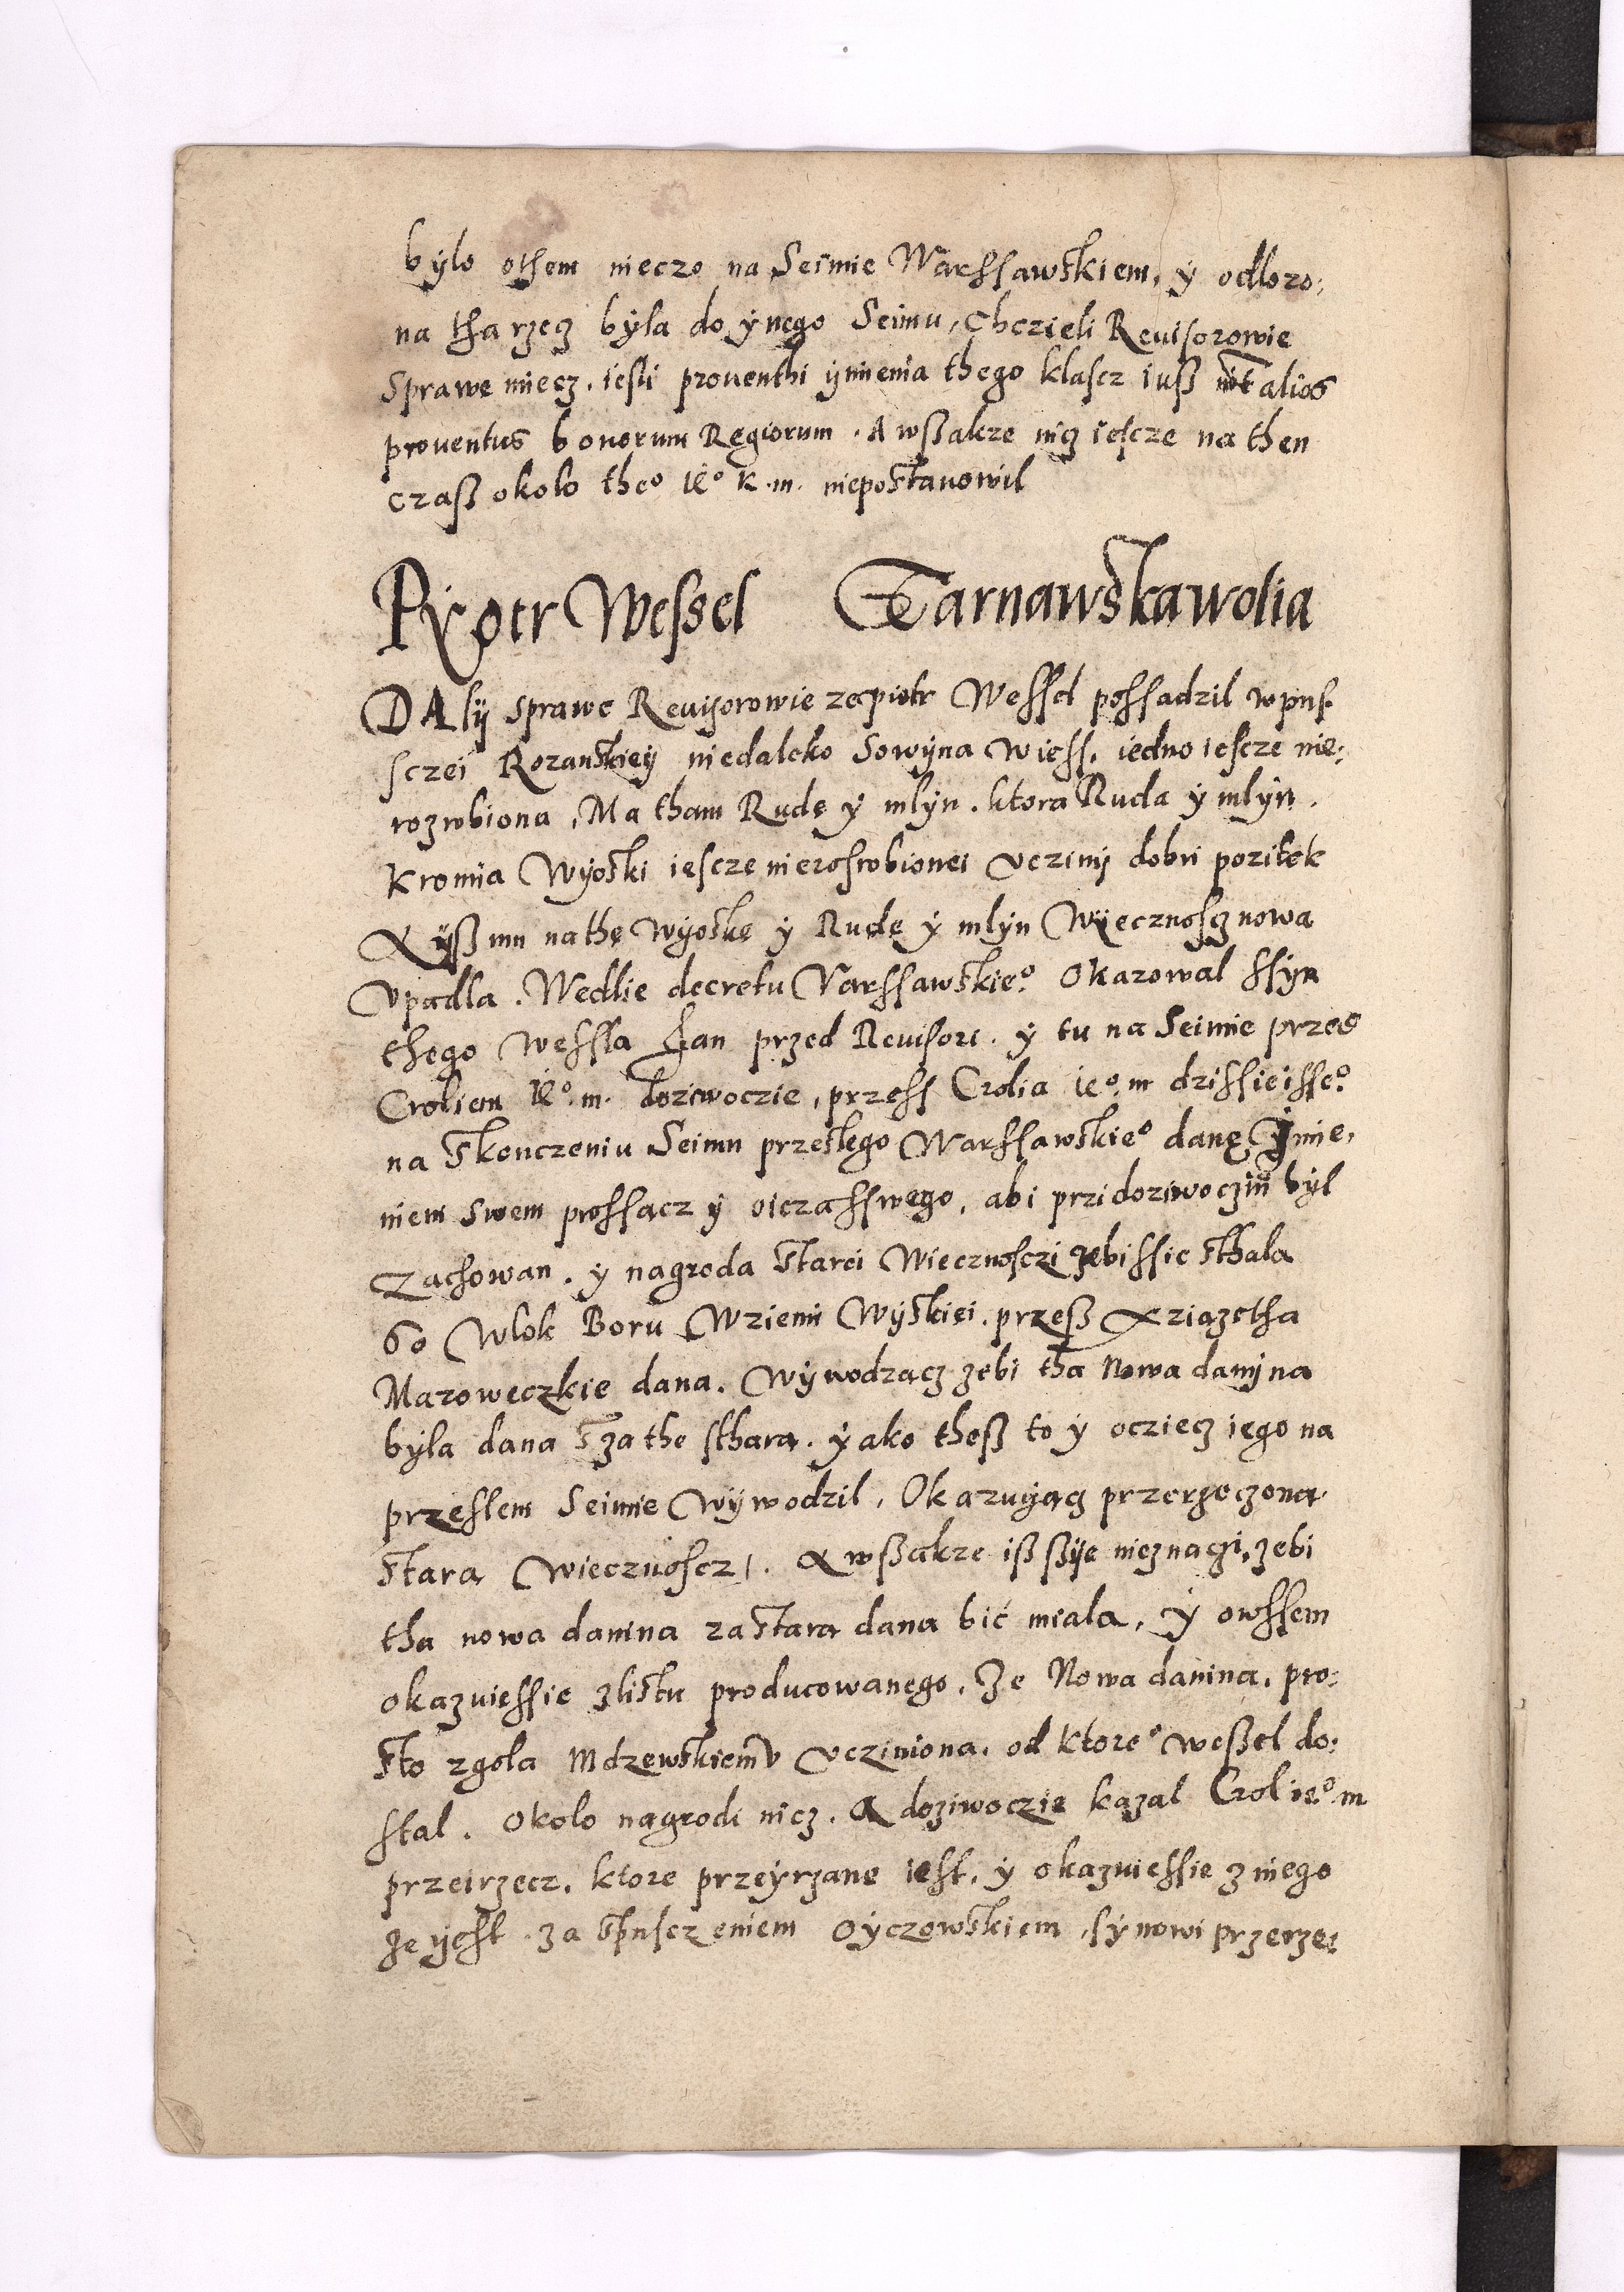 było othem nieczo na Seimie Warssawskiem, ÿ odlozo:
na tha rzecz była do ÿnego Seimu, Chczieli Reuisorowie
Sprawe miecz, iesli prouenthi ÿmienia thego klascz iuß int̄ alios
prouentus bonorum Regiorum. A wßakze nicz iescze na then
czaß około theo ie̊ K. m. niepostanowił
Pÿotr Wessel Tarnawskawolia
DAlÿ sprawe Reuisorowie ze piotr Wessel possadzil w pus
sczei Rozanskieÿ niedaleko Sowÿna Wiess, iedno iescze nie:
rozrobiona, Ma tham Rudę ÿ młyn. ktora Ruda ÿ mlÿn.
Kromia Wÿoski iescze nierosrobionei vczinÿ dobri pozitek
A ÿß mu na thę wÿoskę ÿ Rudę ÿ mlÿn Wÿecznoscz nowa
vpadla. Wedlie decretu Varssawskie̊. Okazowal ssÿn
thego Wessla Jan przed Reuisori. ÿ tu na Seimie przed
Croliem ie̊. m. doziwoczie, przess Crolia ie̊. m dzissieisse̊.
na skonczeniu Seimu przeslego Warssawskie̊ danę Jmie,
niem swem prossącz ÿ oicza sswego, abi przi doziwocziu bÿl
zachowan. ÿ nagroda starei Wiecznosczi zebi ssie sthala
60 Wlok Boru W ziemi Wÿskiei. przeß Xziązetha
Mazoweczkie dana. Wÿwodzącz zebi tha Nowa danÿna
bÿla dana za the sthara. ÿako theß to ÿ ocziecz iego na
przeslem Seimie Wÿwodzil, Okazuÿącz przerzeczona
stara Wiecznoscz. A wßakze iß ßÿe nieznaczi, zebi
tha nowa danina za stara dana bić miala, ÿ owssem
okazuiessie z listu producowanego, Ze Nowa danina, pro:
sto zgola Mdzewskiemu vcziniona, od ktore̊ Weßel do:
stal. Okolo nagrodi nicz. A doziwoczie kazal Crol ie̊. m
przeirzecz, ktore przeÿrzane iest, ÿ okazuiessie z niego
ze ÿest za spusczeniem Oÿczowskiem, sÿnowi przerze: